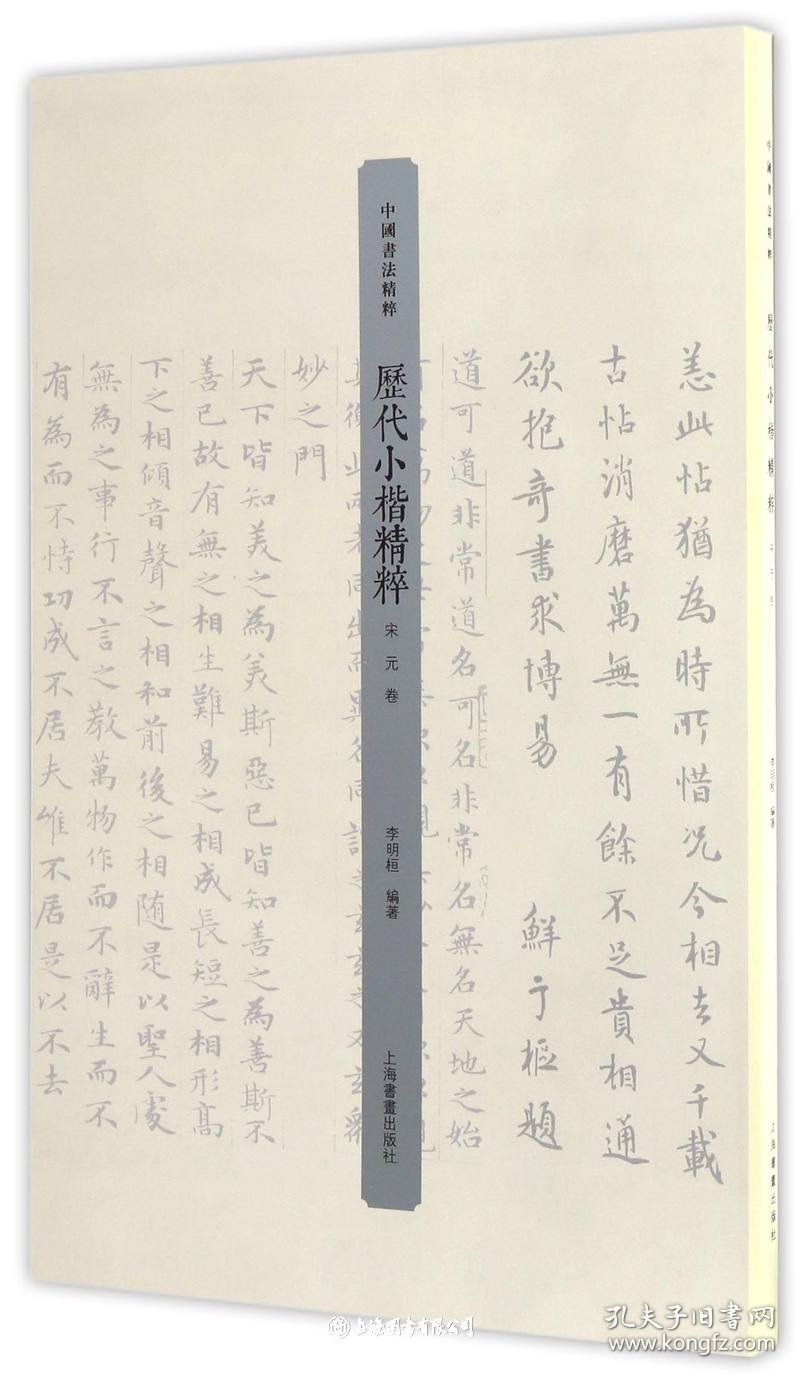 中國書法精粹
歷代小楷精粹
宋元卷
李明桓 編著
上海書畫出版社
恙此帖猶為時所惜况今相去又千載
古帖消磨萬無一有餘不足貴相通
欲抱奇書求博易
鮮于樞題
道可道非常道名可名非常名無名天地之始
其徼此兩者同出而異名同謂之玄玄之又玄衆
妙之門
天下皆知美之為美斯惡已皆知善之為善斯不
善已故有無之相生難易之相成長短之相形高
下之相傾音聲之相和前後之相随是以聖人處
無為之事行不言之教萬物作而不辭生而不
有為而不恃功成不居夫惟不居是以不去
中國書法精粹
歷代小楷精粹
宋元卷
李明桓 編著
上海書畫出版社
上海图书有限公司
孔夫子旧书网
www.kongfz.com